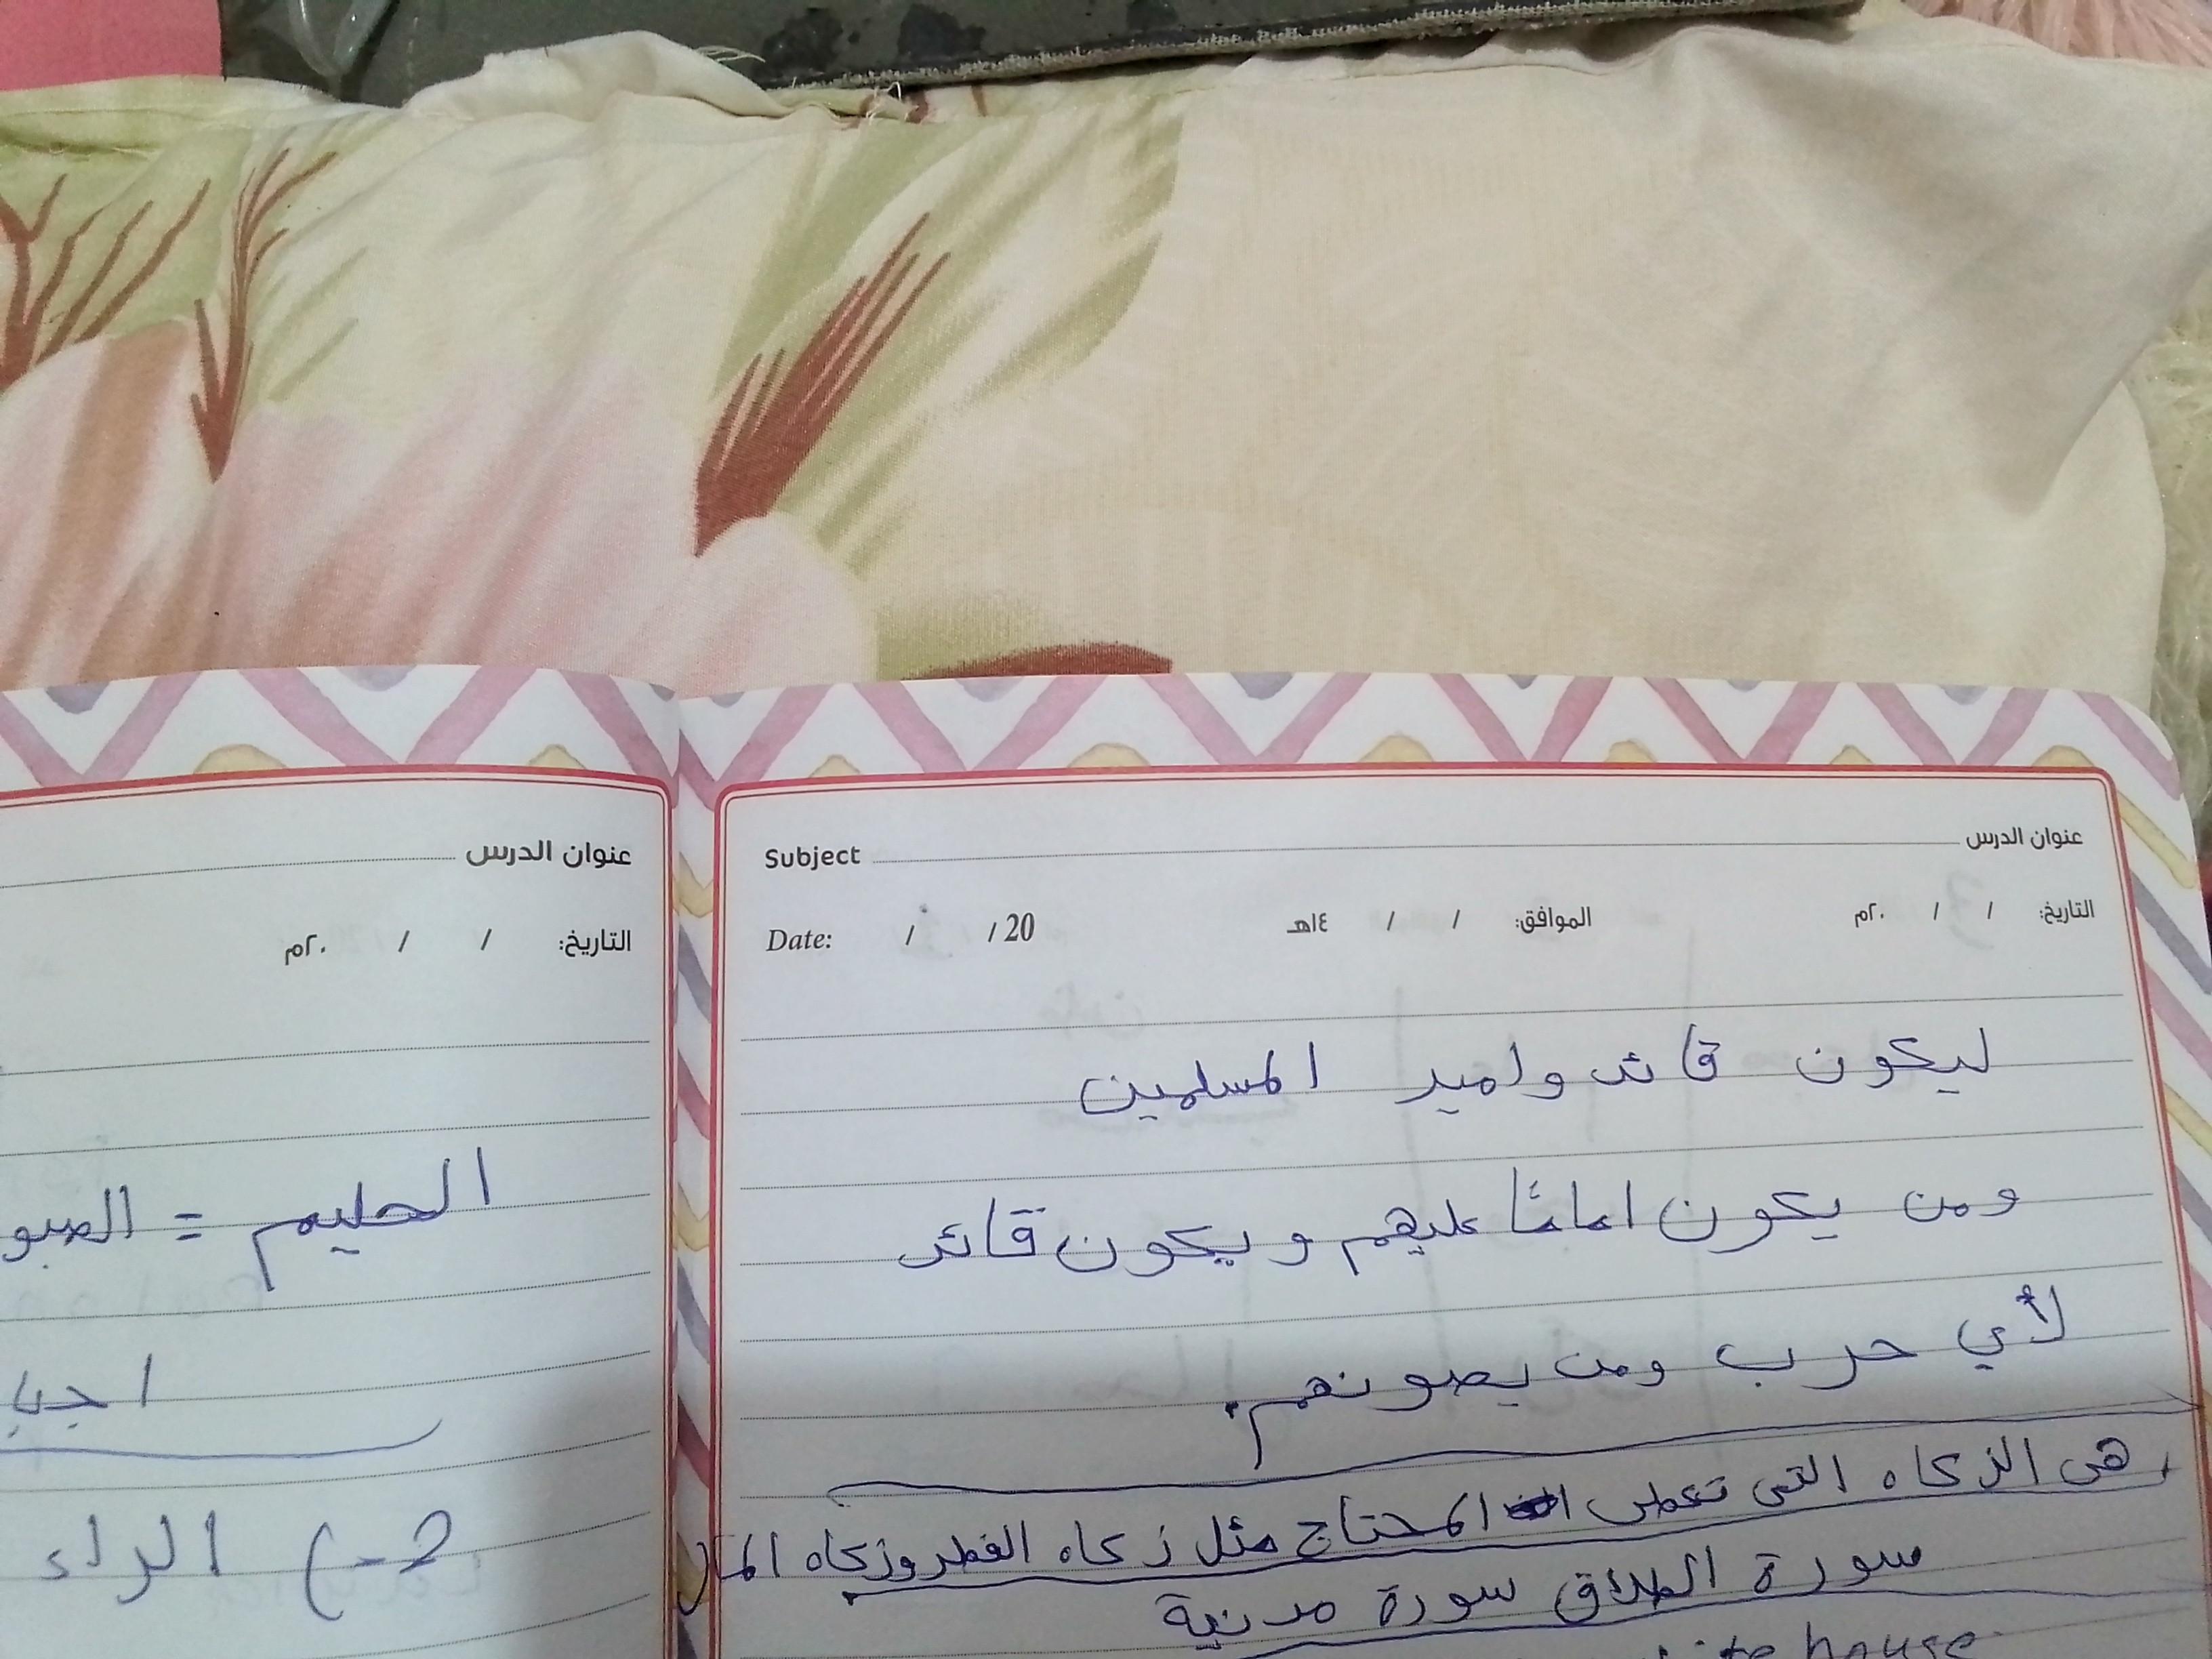 عنوان الدرس Subject
التاريخ: / / ٢٠م الموافق: / / ١٤هـ Date: / / 20
ليكون قائد وامير المسلمين
ومن يكون اماماً عليهم ويكون قائد
لأي حرب ومن يصونهم.
هى الزكاه التى تعطى المحتاج مثل زكاه الفطر وزكاه المال
سورة الطلاق سورة مدنية
house
عنوان الدرس
التاريخ: / / ٢٠م
الحليم = الصبو
اجبا
2-) الراء